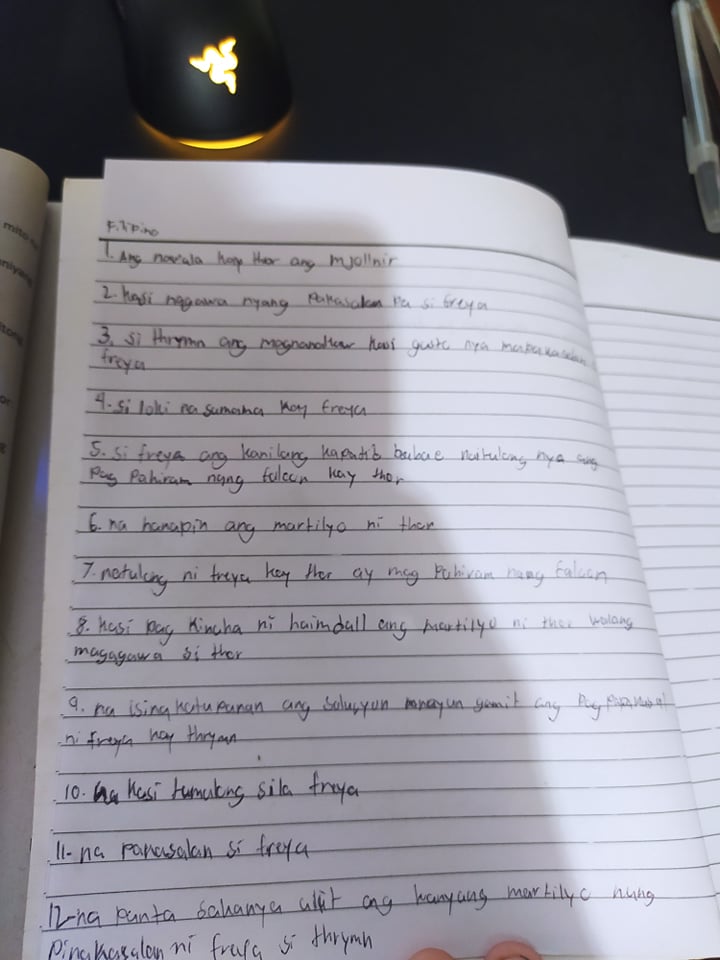 Filipino
1. Ang nawala kay thor ang Mjollnir
2. kasi nagawa nyang Pakasalan pa si freya
3. si thrymn ang magnanakaw kasi gusto nya mapakasalan
freya
4. si loki na sumama kay freya
5. si freya ang kanilang kapatib babae naitulong nya ang
Pag Pahiram nang falcon kay thor
6. na hanapin ang martilyo ni thor
7. natulong ni freya kay thor ay mag Pahiram nang falcon
8. kasi pag kincha ni haimdall ang martilyo ni thor walang
magagawa si thor
9. na isinakatuparan ang salusyun gamit ang Pag
ni freya kay thrymn
10. kasi tumulong sila freya
11. na pakasalan si freya
12. na punta sakanya ulit ang kanyang martilyo nung
Pinakasalan ni freya si thrymn
mito
niyang
itong
or